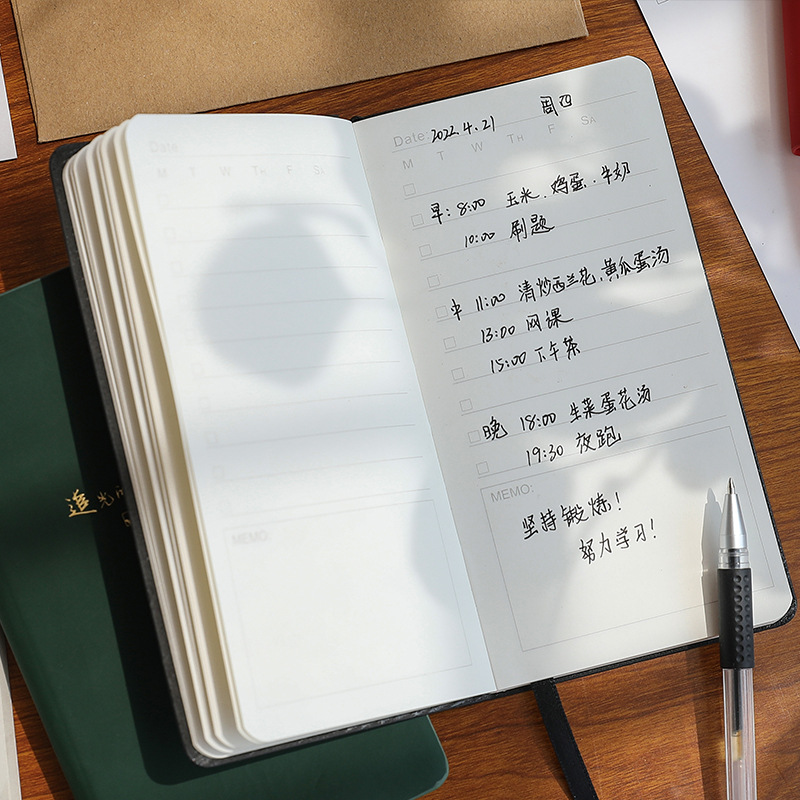 Date:
M T W TH F SA
MEMO:
Date: 2022.4.21 周四
M T W TH F SA
早: 8:00 玉米、鸡蛋、牛奶
10:00 刷题
中 11:00 清炒西兰花、黄瓜蛋汤
13:00 网课
15:00 下午茶
晚 18:00 生菜蛋花汤
19:30 夜跑
MEMO:
坚持锻炼!
努力学习!
追光